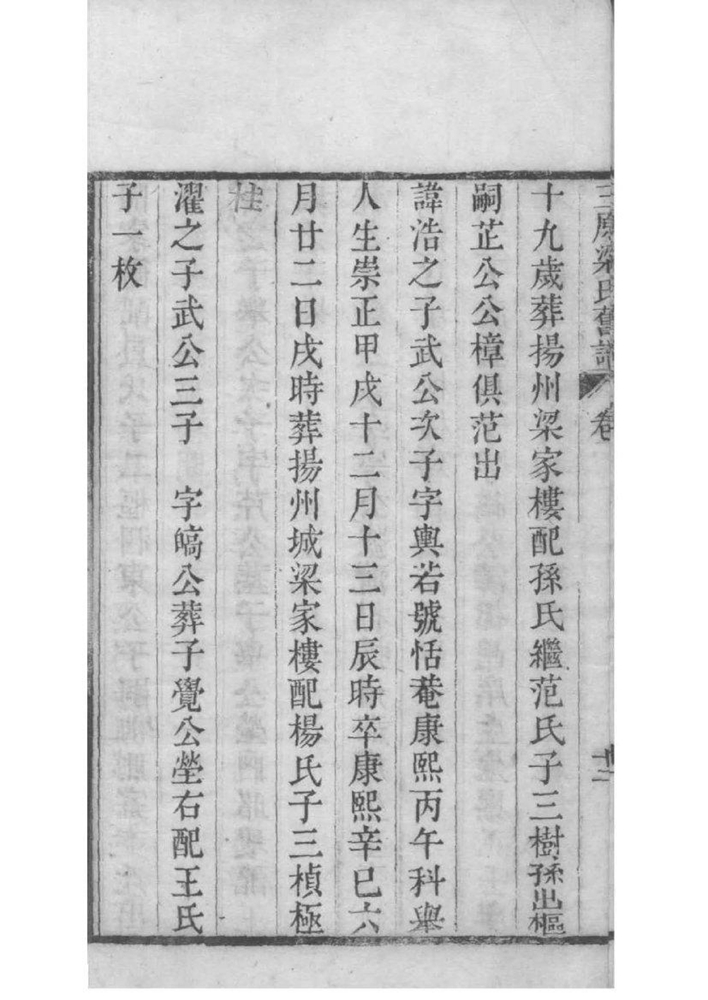 三原梁氏舊譜 卷 十二
十九歲葬揚州梁家樓配孫氏繼范氏子三樹孫出樞
嗣芷公公樟俱范出
諱浩之子武公次子字輿若號恬菴康熙丙午科舉
人生崇正甲戌十二月十三日辰時卒康熙辛巳六
月廿二日戌時葬揚州城梁家樓配楊氏子三楨極
柱
濯之子武公三子 字皜公葬子覺公塋右配王氏
子一枚